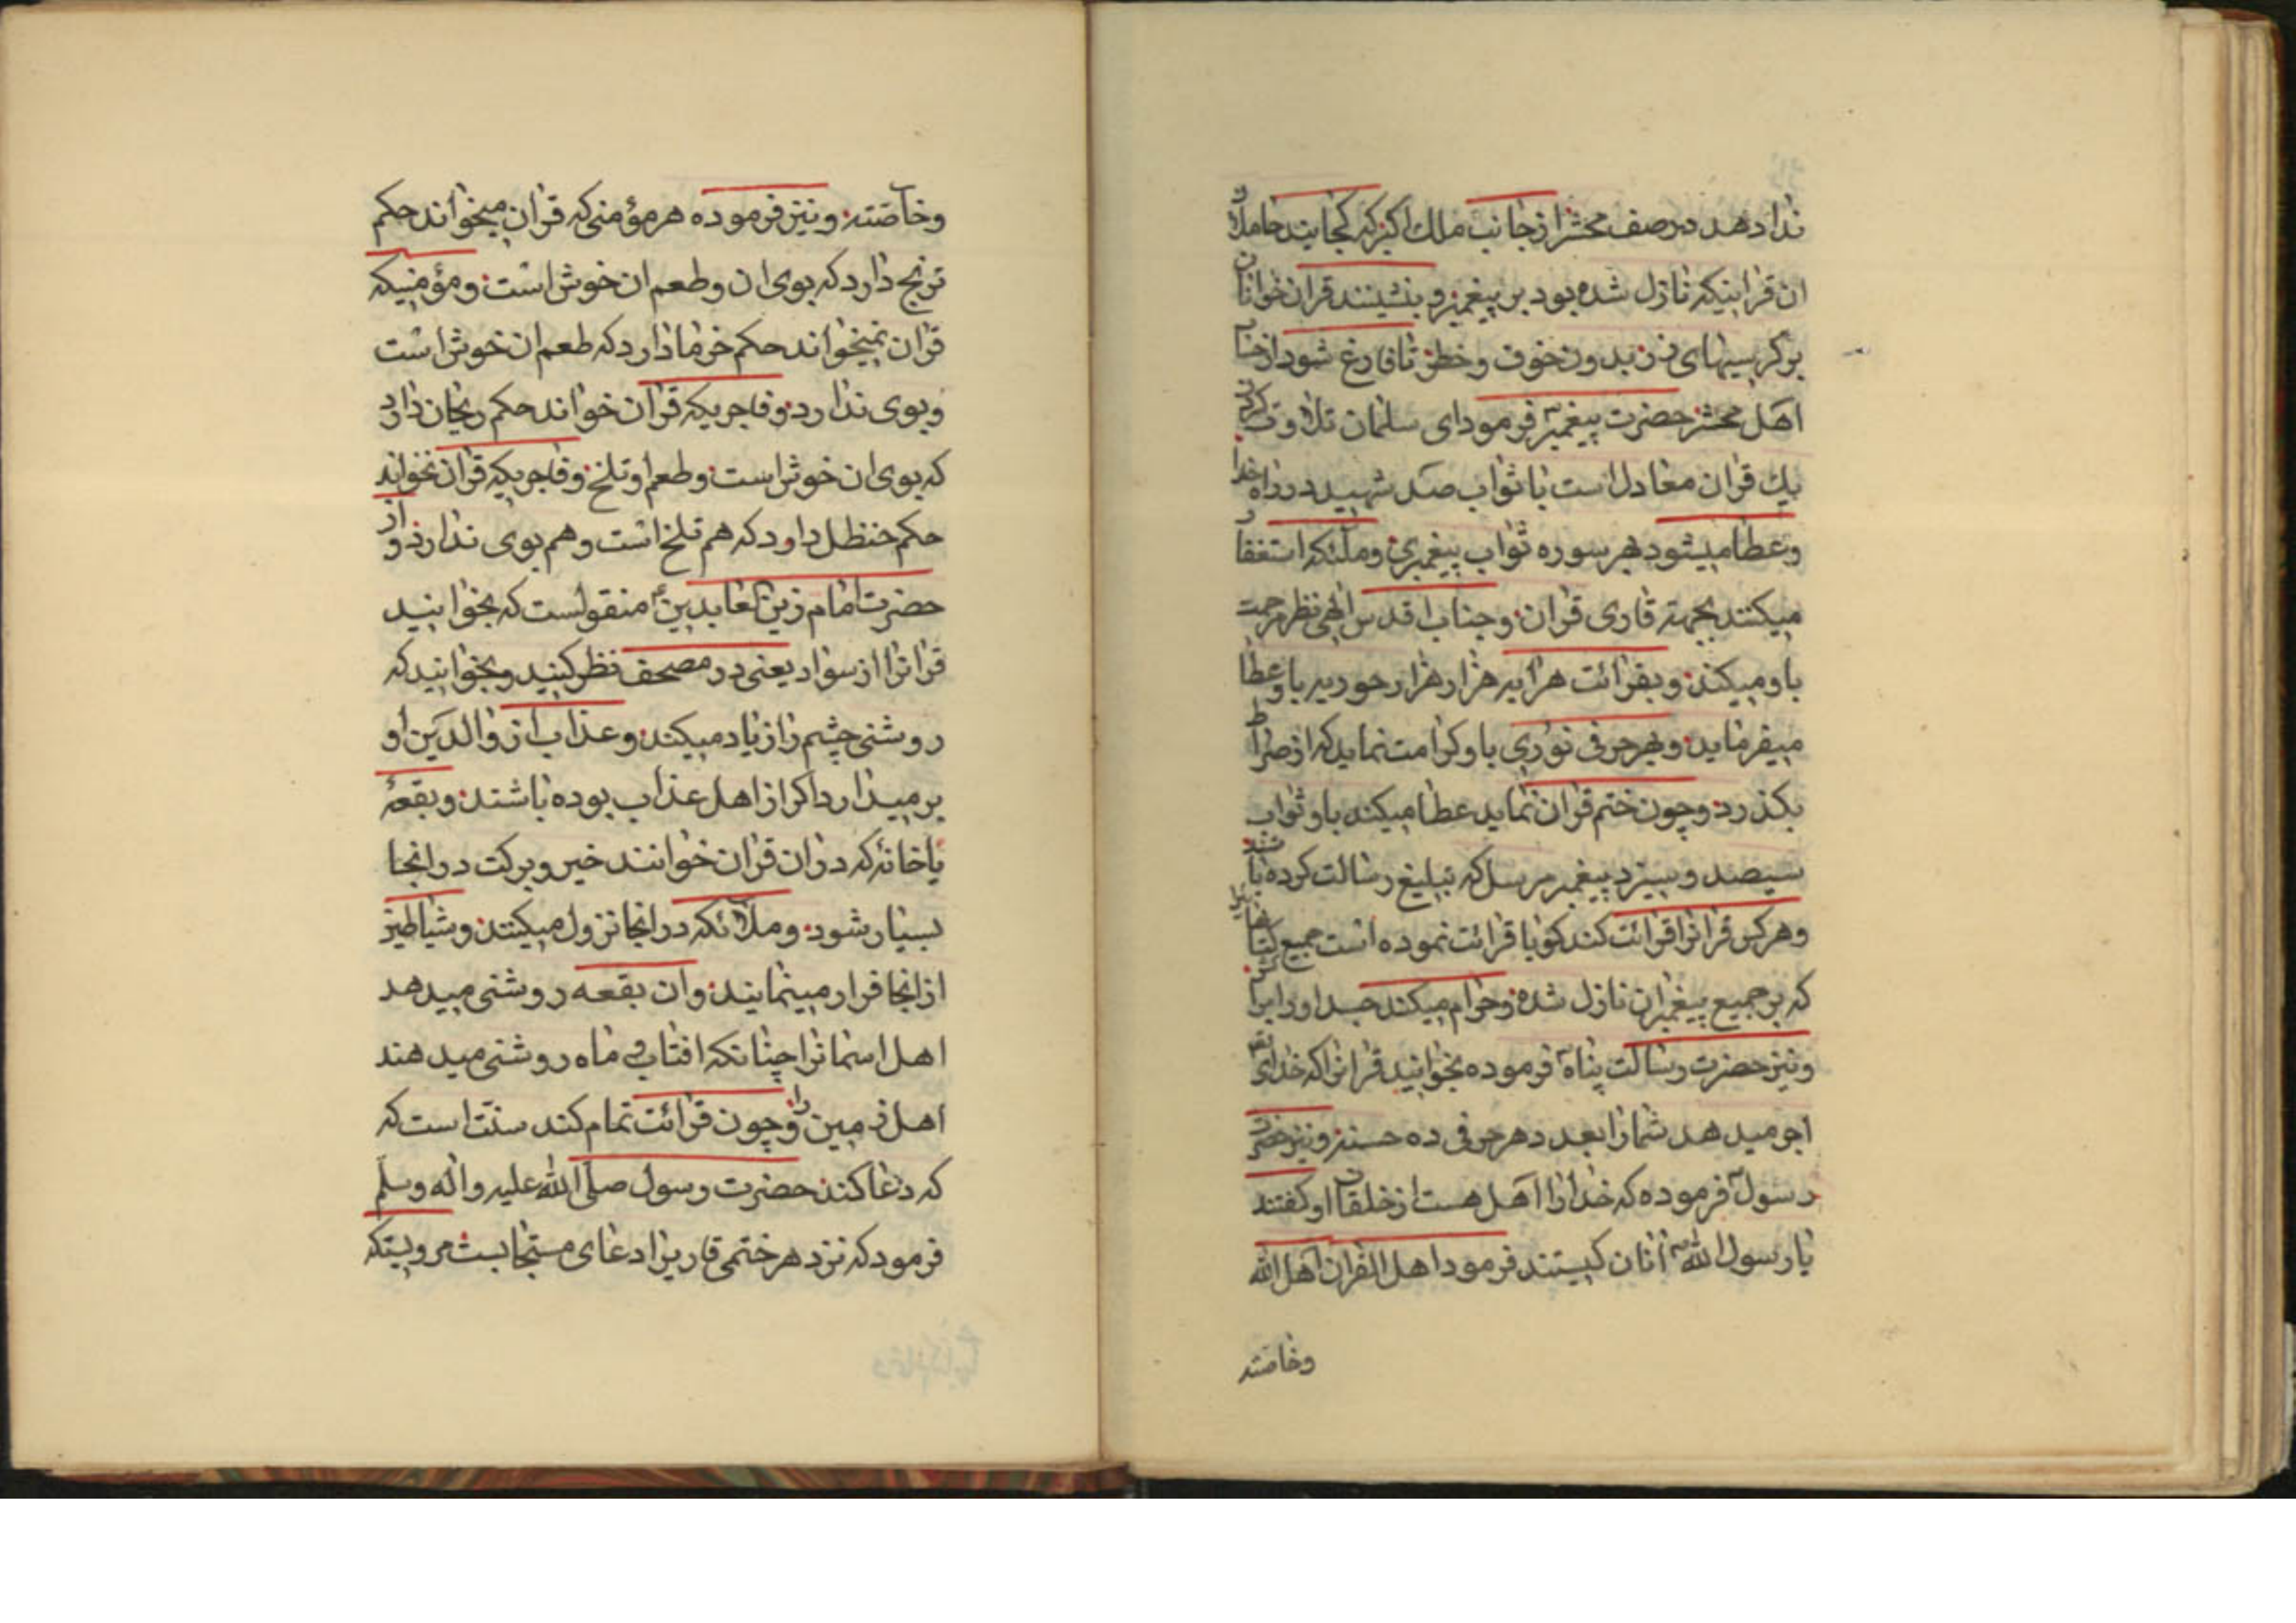 ندا دهد در صف محشر از جانب ملك اكبر كه كجايند حاملان
ان قرانيكه نازل شده بود بر پيغمبر و بنشينند قران خوانان
بر كرسيهاى زر بدون خوف و خطر تا فارغ شود از حساب
اهل محشر حضرت پيغمبر فرمود اى سلمان تلاوت كردن
يك قران معادل است با ثواب صد شهيد در راه خدا
و عطا ميشود بهر سوره ثواب پيغمبرى و ملئكه استغفار
ميكنند بجهة قارى قران و جناب اقدس الهى نظر مرحمت
باو ميكند و بقرائت هر ايه هزار هزار حوريه باو عطا
ميفرمايد و بهر حرفى نورى باو كرامت نمايد كه از صراط
بكذرد و چون ختم قران نمايد عطا ميكند باو ثواب
سيصد و سيزده پيغمبر مرسل كه تبليغ رسالت كرده باشند
و هركس قرانرا قرائت كند كويا قرائت نموده است جميع كتابهائيرا
كه بر جميع پيغمبران نازل شده و حرام ميكند جسد او را بر اتش
و نيز حضرت رسالت پناه فرموده بخوانيد قرانرا كه خداى تعم
اجر ميدهد شما را بعدد هر حرفى ده حسنه و نيز حضرت
رسول فرموده كه خدا را اهل هست از خلقان او كفتند
يا رسول الله انان كيستند فرمود اهل القران اهل الله
وخاصته
وخاصته و نيز فرموده هر مؤمنى كه قران ميخواند حكم
ترنج دارد كه بوى ان و طعم ان خوش است و مؤمنيكه
قران نميخواند حكم خرما دارد كه طعم ان خوش است
و بوى ندارد و فاجريكه قران خواند حكم ريحان دارد
كه بوى ان خوش است و طعم او تلخ و فاجريكه قران نخواند
حكم حنظل دارد كه هم تلخ است و هم بوى ندارد و از
حضرت امام زين العابدين ع منقولست كه بخوانيد
قرانرا از سواد يعنى در مصحف نظر كنيد و بخوانيد كه
روشنى چشم را زياد ميكند و عذاب از والدين او
بر ميدارد اكر از اهل عذاب بوده باشند و بقعهٔ
يا خانهٔ كه در ان قران خوانند خير و بركت در انجا
بسيار شود و ملائكه در انجا نزول ميكنند و شياطين
از انجا فرار مينمايند و ان بقعه روشنى ميدهد
اهل اسمانرا چنانكه افتاب و ماه روشنى ميدهند
اهل زمين را و چون قرائت تمام كند سنت است كه
كه دعا كند حضرت رسول صلى الله عليه و اله و سلم
فرمود كه نزد هر ختمى قاريرا دعاى مستجابست مرويستكه